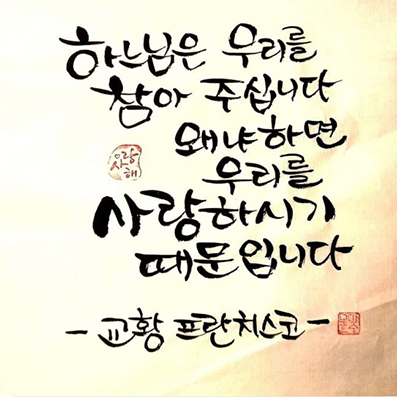 하느님은 우리를
참아 주십니다
왜냐하면
사랑해
우리를
사랑하시기
때문입니다
- 교황 프란치스코 -